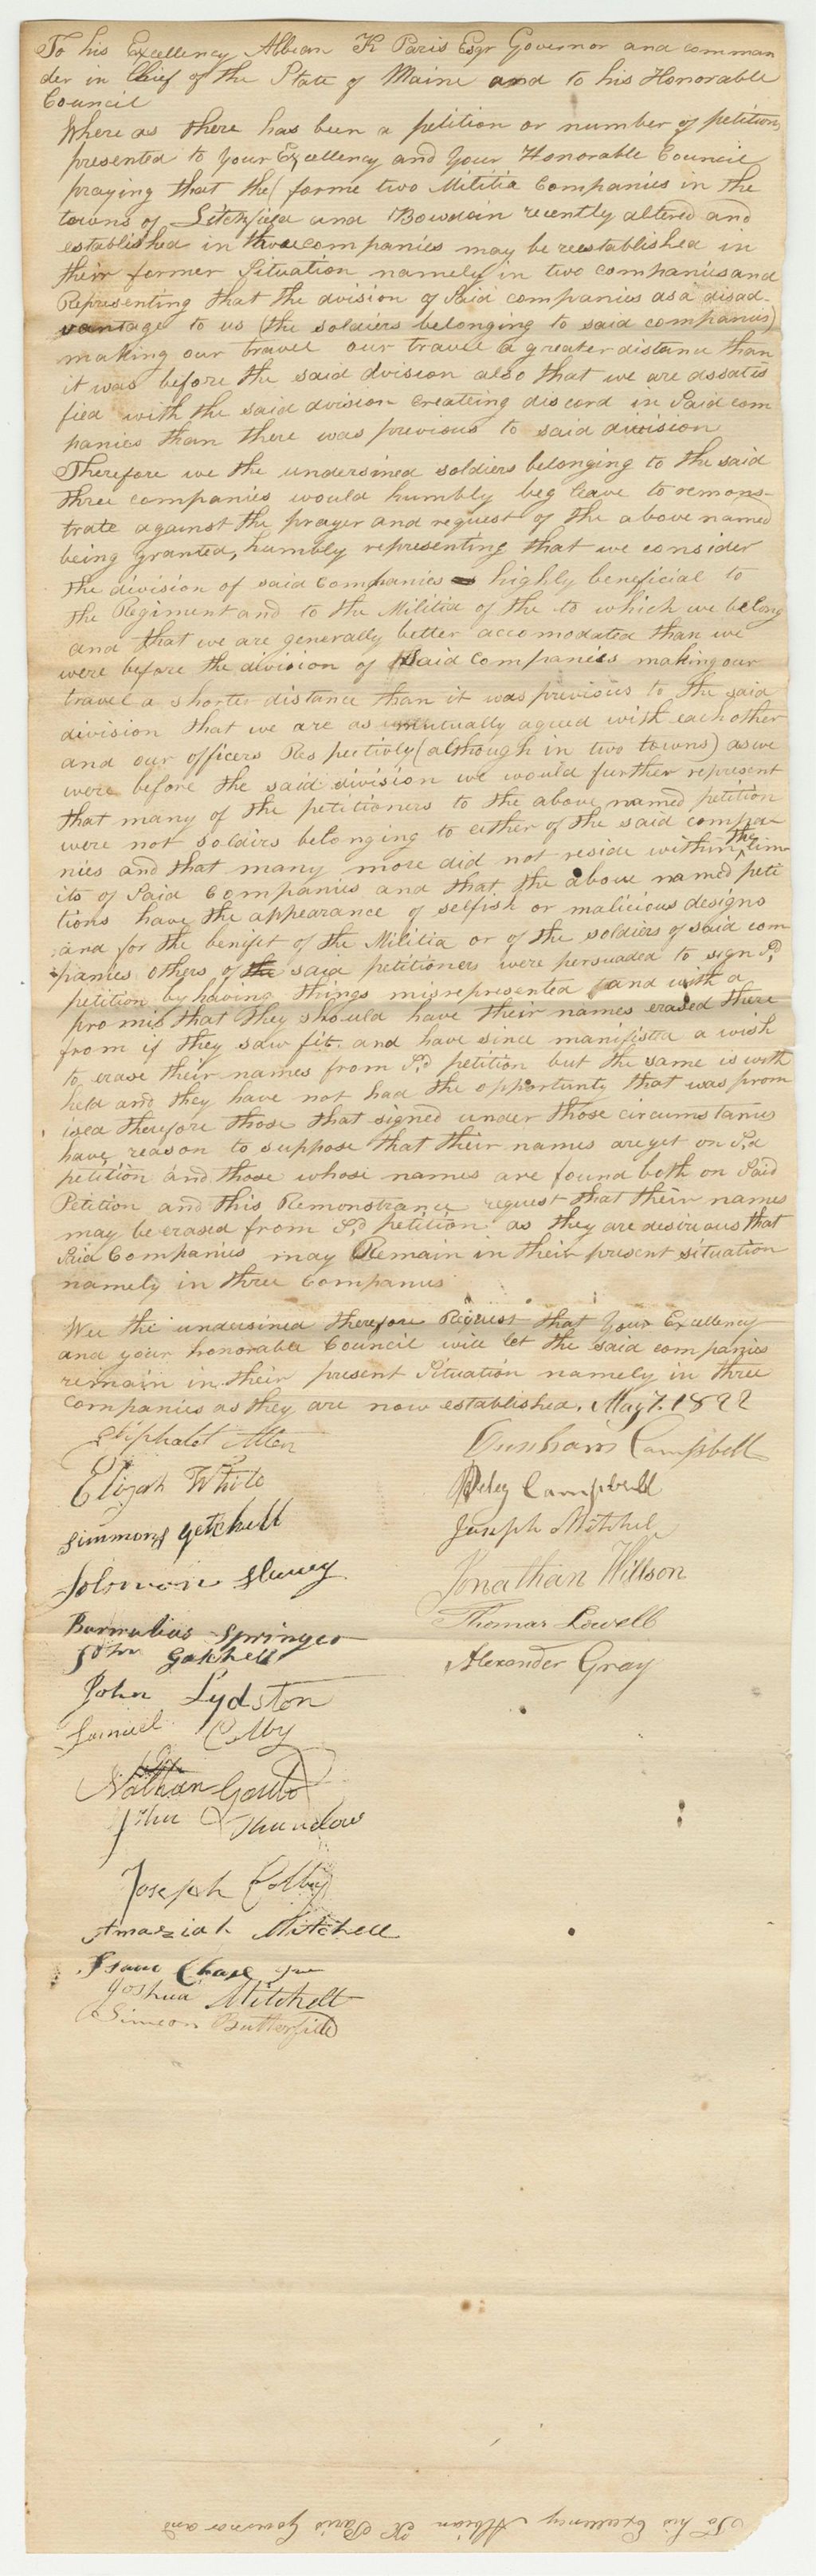 To his Excellency Albion K Paris Esqr Governor and comman
der in Chief of the State of Maine and to his Honorable
Council
Where as there has been a petition or number of petitions
presented to your Excellency and your Honorable Council
praying that the forme two Militia Companies in the
towns of Litchfield and Bowdoin recently altered and
established in three companies may be reestablished in
their former Situation namely in two companies and
Representing that the division of Said companies as a disad-
vantage to us (the soldiers belonging to said companies)
making our travel our travel a greater distance than
it was before the said division also that we are dssatis
fied with the said division creating descord in Said com
panies than there was previous to said division
Therefore we the undersined soldiers belonging to the said
three companies would humbly beg leave to remons-
trate against the prayer and request of the above named
being granted, humbly representing that we consider
the division of said Companies highly beneficial to
the Regiment and to the Militia of the to which we belong
and that we are generally better accomodated than we
were before the division of Said Companies making our
travel a shorter distance than it was previous to the said
division that we are as mutually agreed with each other
and our officers Respectivly (although in two towns) as we
were before the said division we would further represent
that many of the petitioners to the above named petition
were not soldiers belonging to either of the said compa
nies and that many more did not reside within the lim
its of Said Companies and that the above named peti
tions have the appearance of selfish or malicious designs
and for the benifit of the Militia or of the soldiers of said com
panies others of the said petitioners were persuaded to sign Sd
petition by having things misrepresented and with a
promis that they should have their names erased there
from if they saw fit and have since manifested a wish
to erase their names from Sd petition but the same is with
held and they have not had the opportunty that was prom
ised therefore those that signed under those circumstances
have reason to suppose that their names are yet on Sd
petition and those whose names are found both on Said
Petition and this Remonstrance request that their names
may be erased from Sd petition as they are desirious that
Said Companies may Remain in their present situation
namely in three Companies
Wee the undersined therefore Request that Your Excellency
and your honorable Council will let the said companies
remain in their present Situation namely in three
Companies as they are now established. May 7. 1822
Eliphalet Allen
Elijah White
Simmons Getchell
Solomon
Barnabas Springer
John Gatchell
John Lydston
Samuel Colby
Nathan Gould
John Thurlow
Joseph Colby
Amaziah Mitchell
Isaac Chase Jur
Joshua Mitchell
Simeon Butterfield
Dunham Campbell
Peleg Campbell
Joseph Mitchel
Jonathan Willson
Thomas Lowell
Alexander Gray
To his Excellency Albion K Paris Governor and